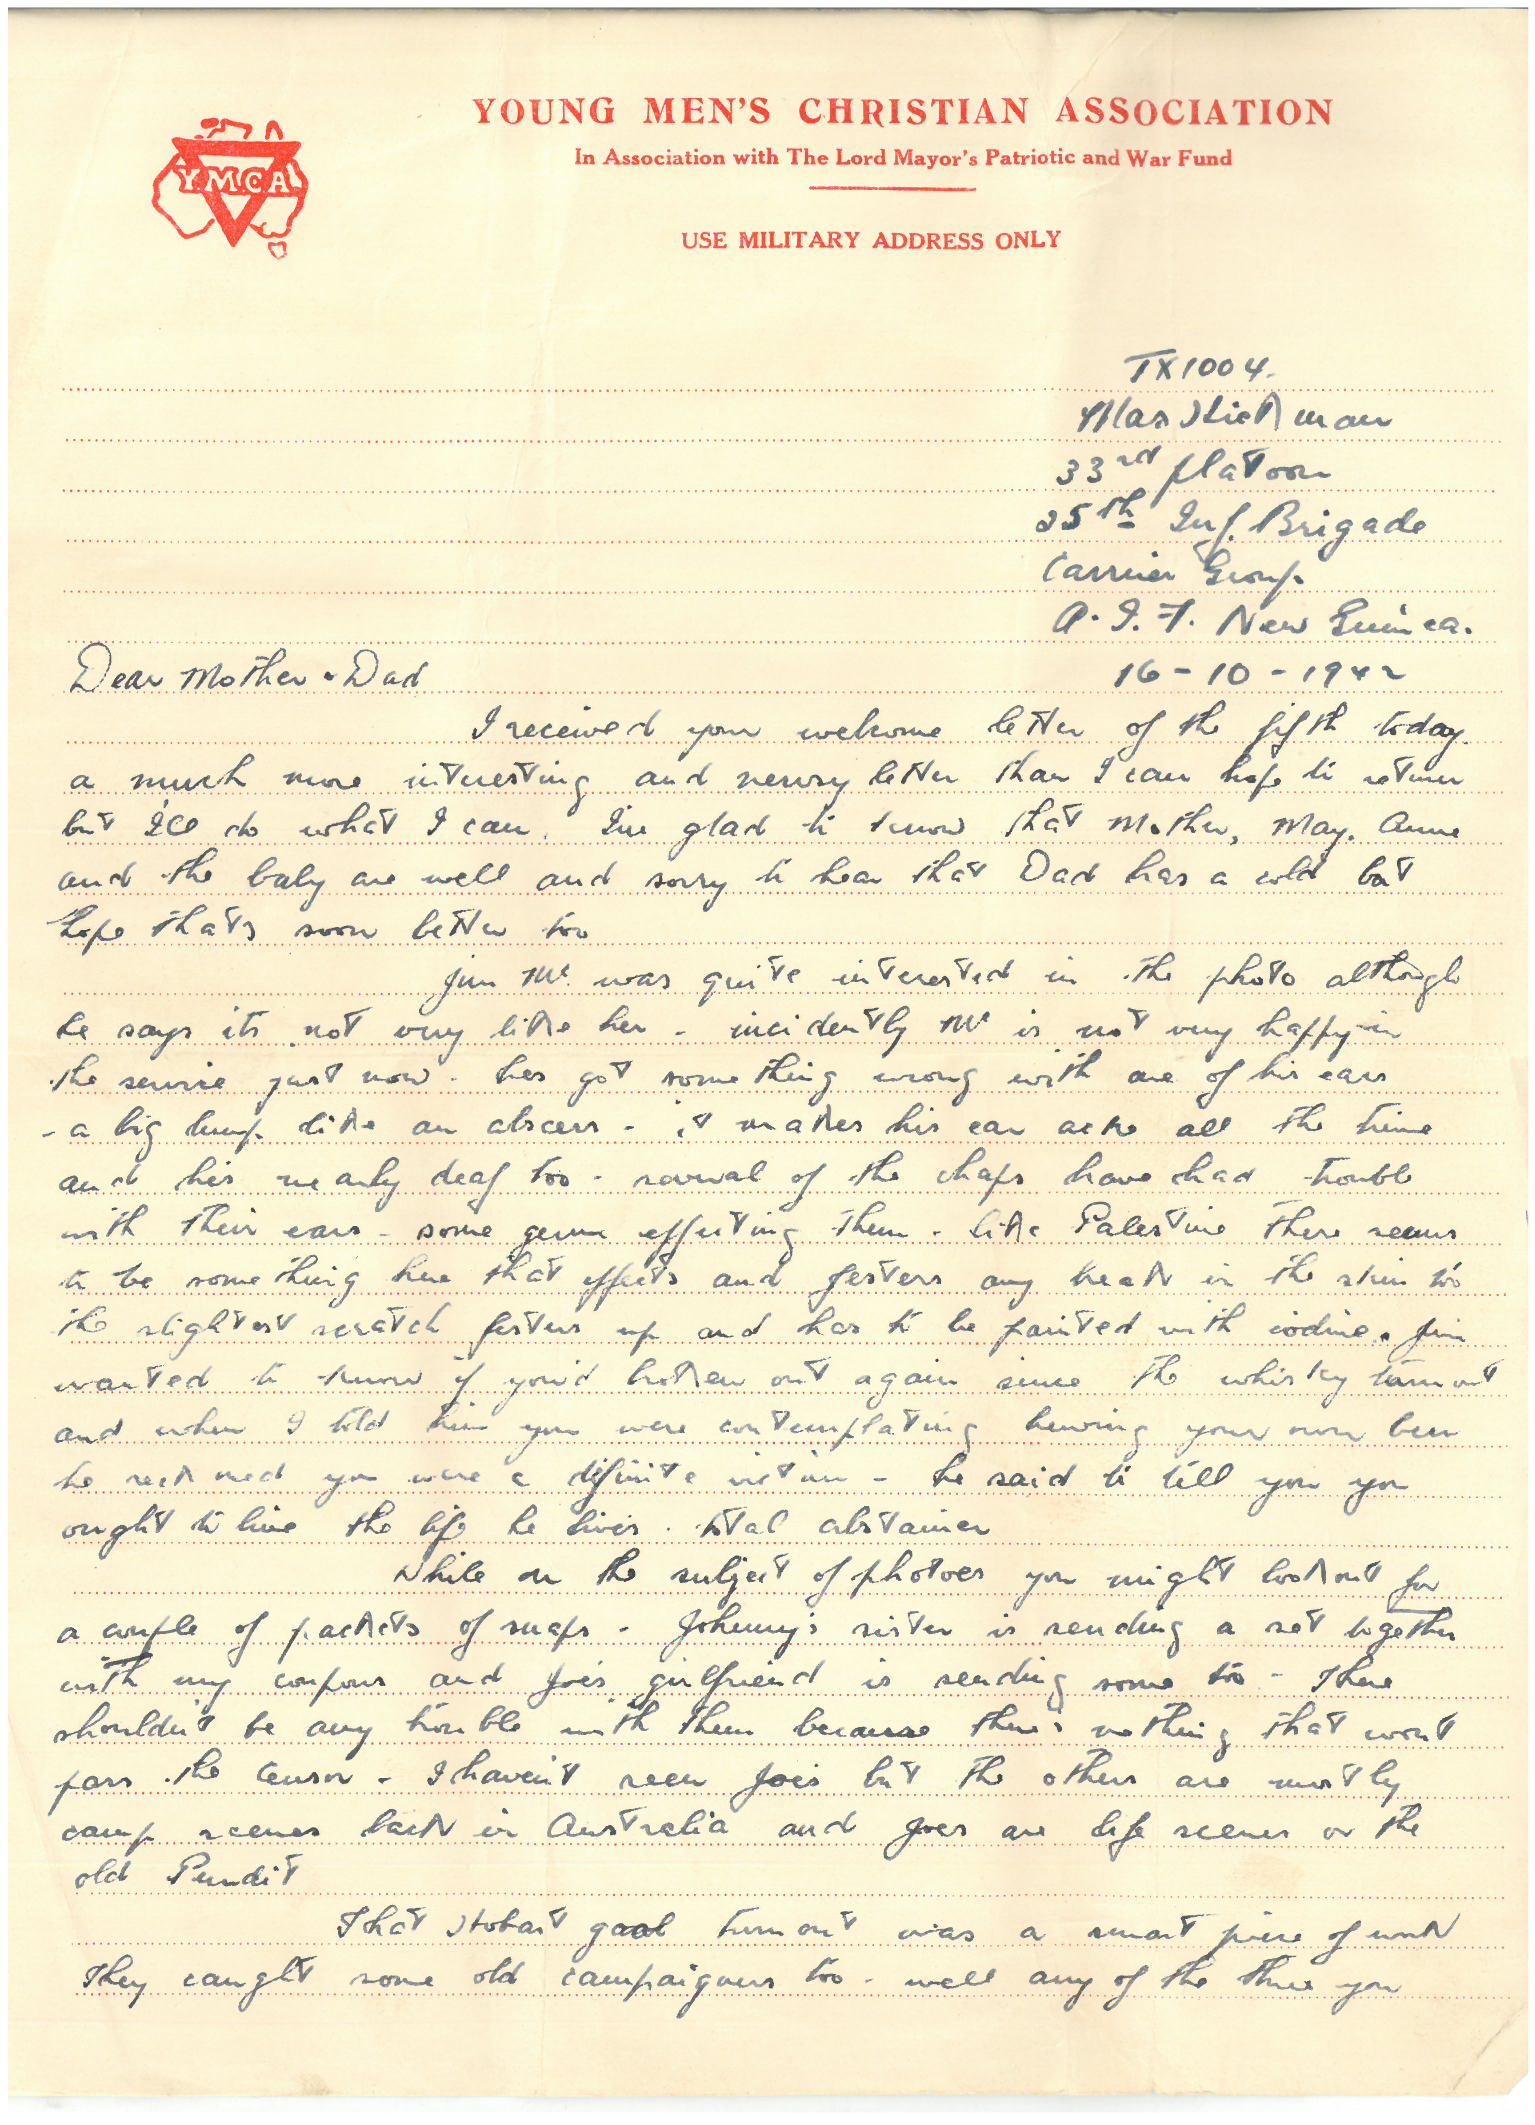 YOUNG MEN'S CHRISTIAN ASSOCIATION
In Association with The Lord Mayor's Patriotic and War Fund
YMCA
USE MILITARY ADDRESS ONLY
TX1004.
Max Hickman
33rd platoon
25th Inf. Brigade
Carrier Group.
A.I.F. New Guinea.
16-10-1942
Dear Mother & Dad
I received your welcome letter of the fifth today.
a much more interesting and newsy letter than I can hope to return
but I'll do what I can. I'm glad to know that Mother, May, Anne
and the baby are well and sorry to hear that Dad has a cold but
hope thats soon better too
Jim Mc. was quite interested in the photo although
he says its not very like her - incidently Mc is not very happy in
the service just now - hes got something wrong with one of his ears
- a big lump like an abscess - it makes his ear ache all the time
and his nearly deaf too - several of the chaps have had trouble
with their ears - some germ effecting them - like Palestine there seems
to be something here that effects and festers any break in the skin too
the slightest scratch festers up and has to be painted with iodine. Jim
wanted to know if you'd broken out again since the whisky turnout
and when I told him you were contemplating brewing your own beer
he reckoned you were a definite victim - he said to tell you you
ought to live the life he lives - total abstainer
While on the subject of photoes you might lookout for
a couple of packets of snaps - Johnny's sister is sending a set together
with my coupons and Joe's girlfriend is sending some too - There
shouldn't be any trouble with them because there's nothing that wont
pass the Censor - I haven't seen Joes but the others are mostly
camp scenes back in Australia and Joes are life scenes on the
old Pundit
That Hobart gaol turnout was a smart piece of work
They caught some old campaigners too - well any of the three you